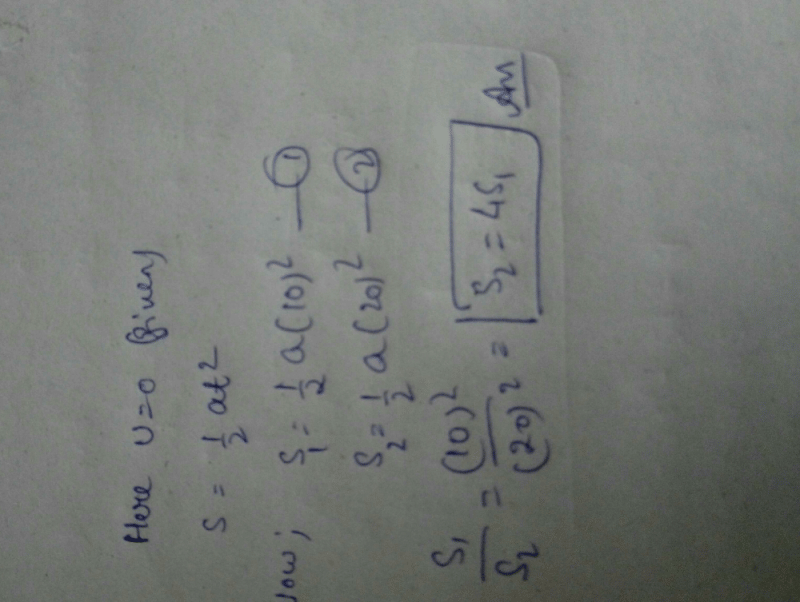 Here U=0 given
S = 1/2 at²
Now; S₁ = 1/2 a(10)² — ①
S₂ = 1/2 a(20)² — ②
S₁/S₂ = (10)²/(20)² = S₂ = 4S₁ Ans